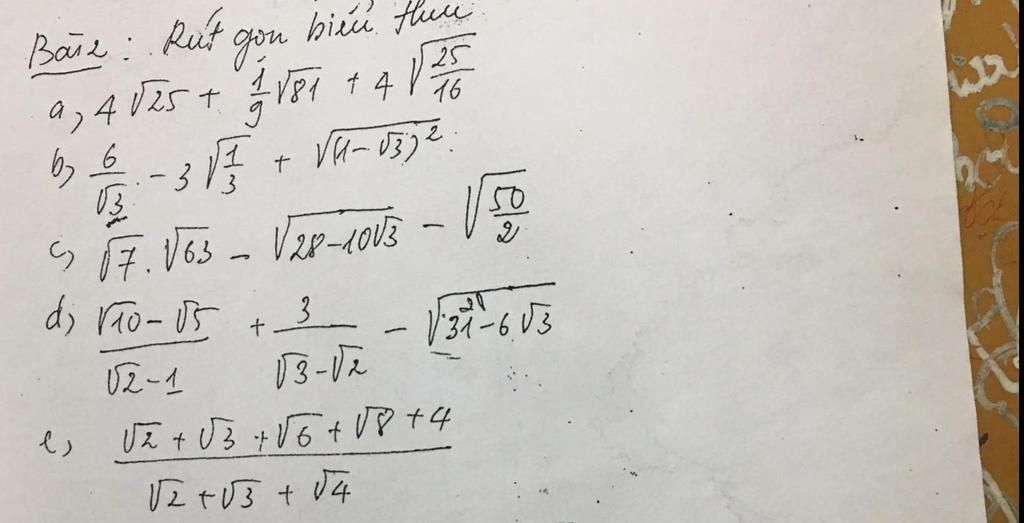 Bài 2: Rút gọn biểu thức
a, 4√25 + 1/9 √81 + 4√(25/16)
b, 6/√3 - 3√(1/3) + √((1-√3)²)
c, √7 . √63 - √(28-10√3) - √(50/2)
d, (√10-√5)/(√2-1) + 3/(√3-√2) - √(31-6√3)
e, (√2+√3+√6+√8+4)/(√2+√3+√4)